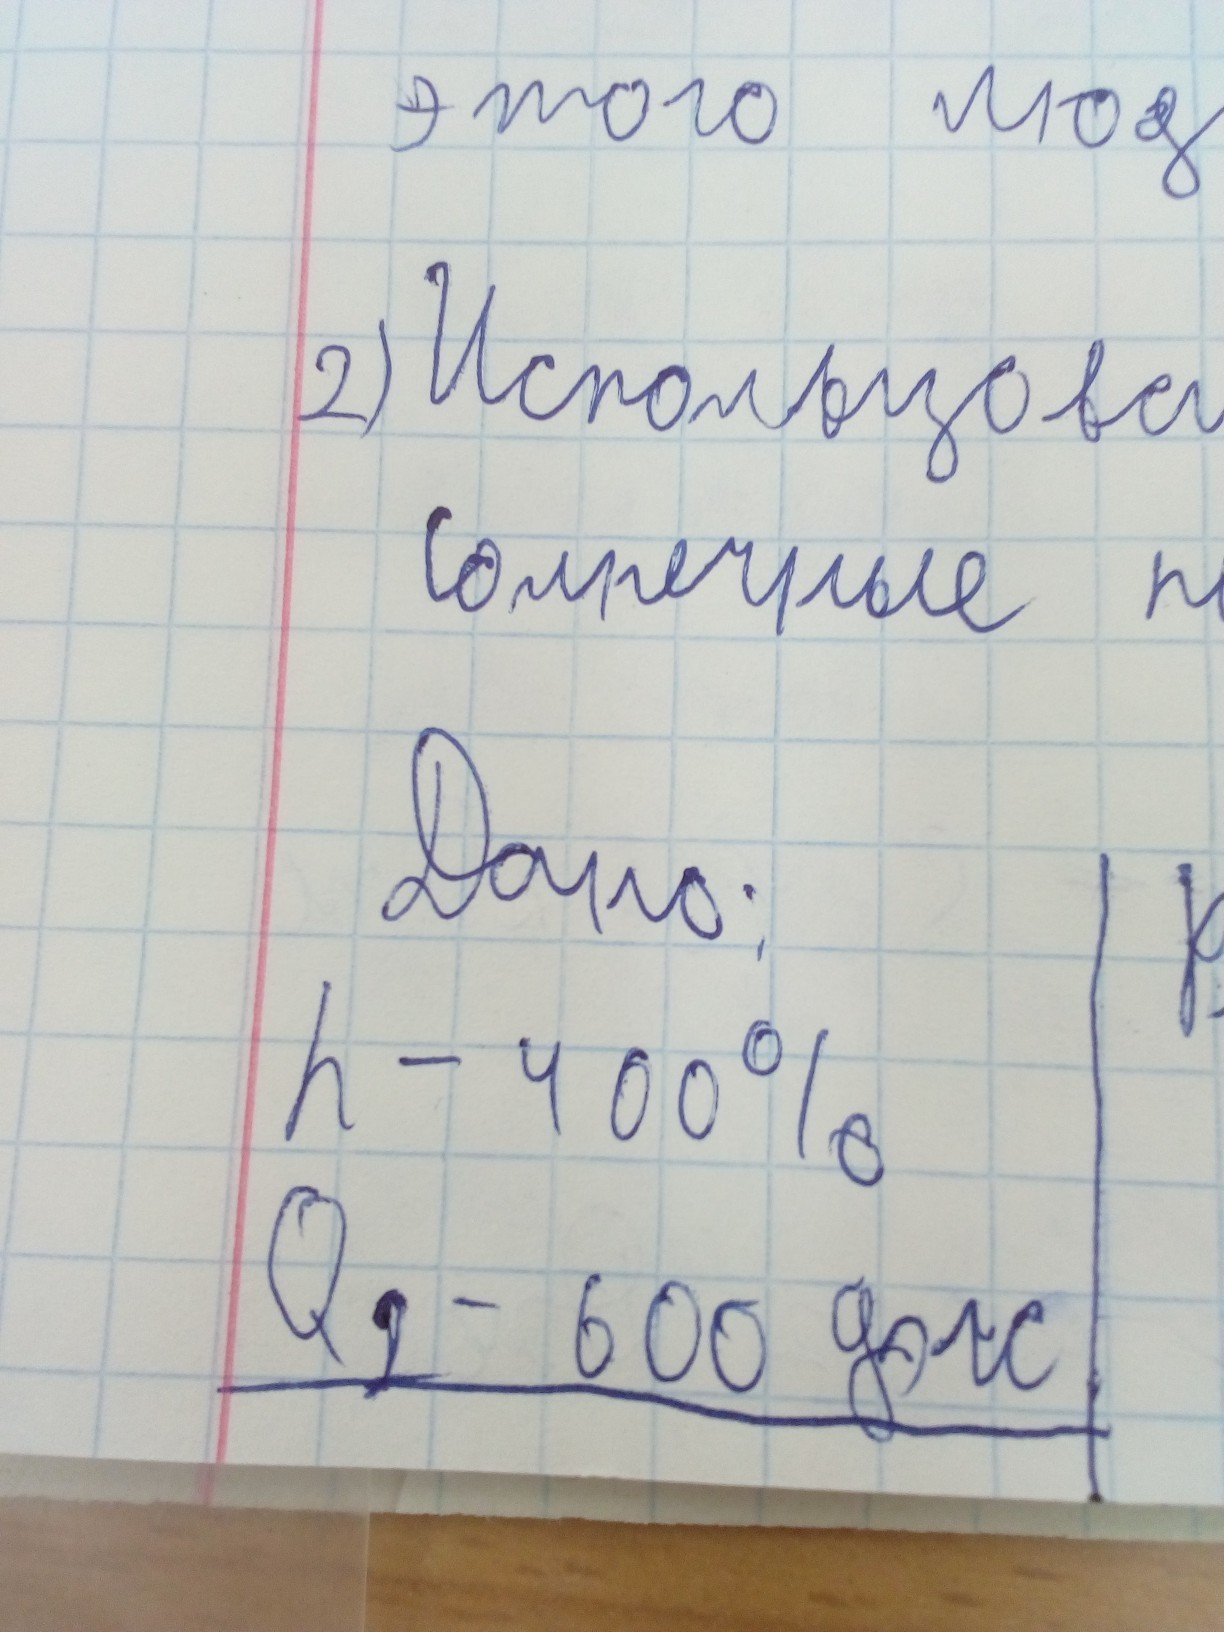 этого
2) Использова
Солнечные
Дано:
h - 400%
Q2 - 600 дж